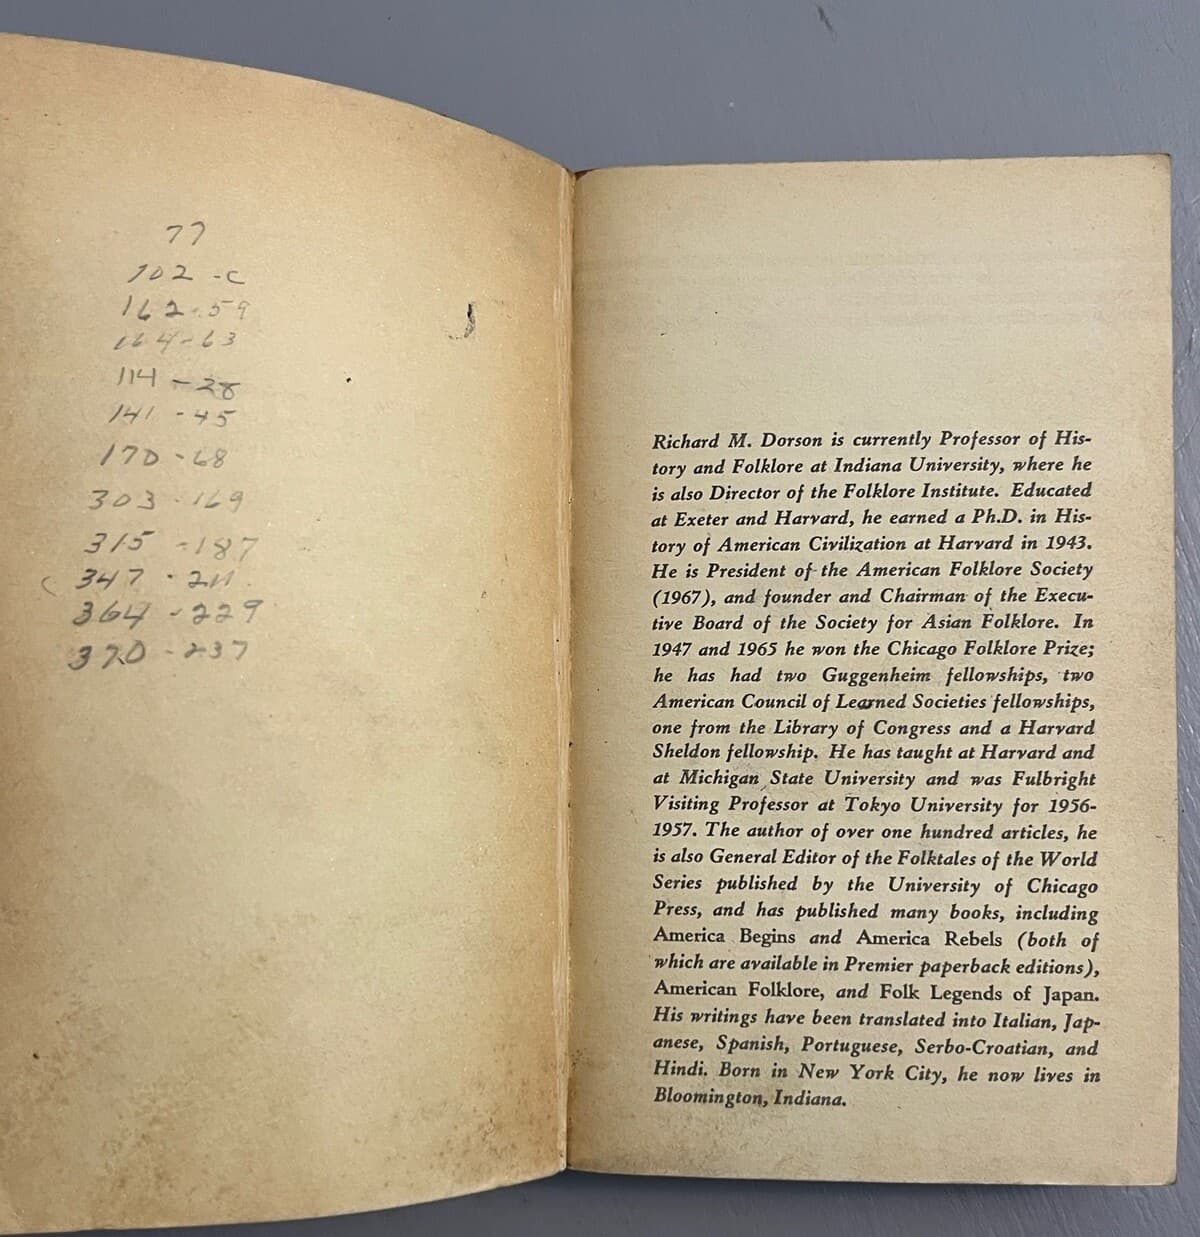 77
102 - C
162 - 59
164 - 63
114 - 28
141 - 45
170 - 68
303 - 169
315 - 187
( 347 - 211
364 - 229
370 - 237
Richard M. Dorson is currently Professor of His-
tory and Folklore at Indiana University, where he
is also Director of the Folklore Institute. Educated
at Exeter and Harvard, he earned a Ph.D. in His-
tory of American Civilization at Harvard in 1943.
He is President of the American Folklore Society
(1967), and founder and Chairman of the Execu-
tive Board of the Society for Asian Folklore. In
1947 and 1965 he won the Chicago Folklore Prize;
he has had two Guggenheim fellowships, two
American Council of Learned Societies fellowships,
one from the Library of Congress and a Harvard
Sheldon fellowship. He has taught at Harvard and
at Michigan State University and was Fulbright
Visiting Professor at Tokyo University for 1956-
1957. The author of over one hundred articles, he
is also General Editor of the Folktales of the World
Series published by the University of Chicago
Press, and has published many books, including
America Begins and America Rebels (both of
which are available in Premier paperback editions),
American Folklore, and Folk Legends of Japan.
His writings have been translated into Italian, Jap-
anese, Spanish, Portuguese, Serbo-Croatian, and
Hindi. Born in New York City, he now lives in
Bloomington, Indiana.